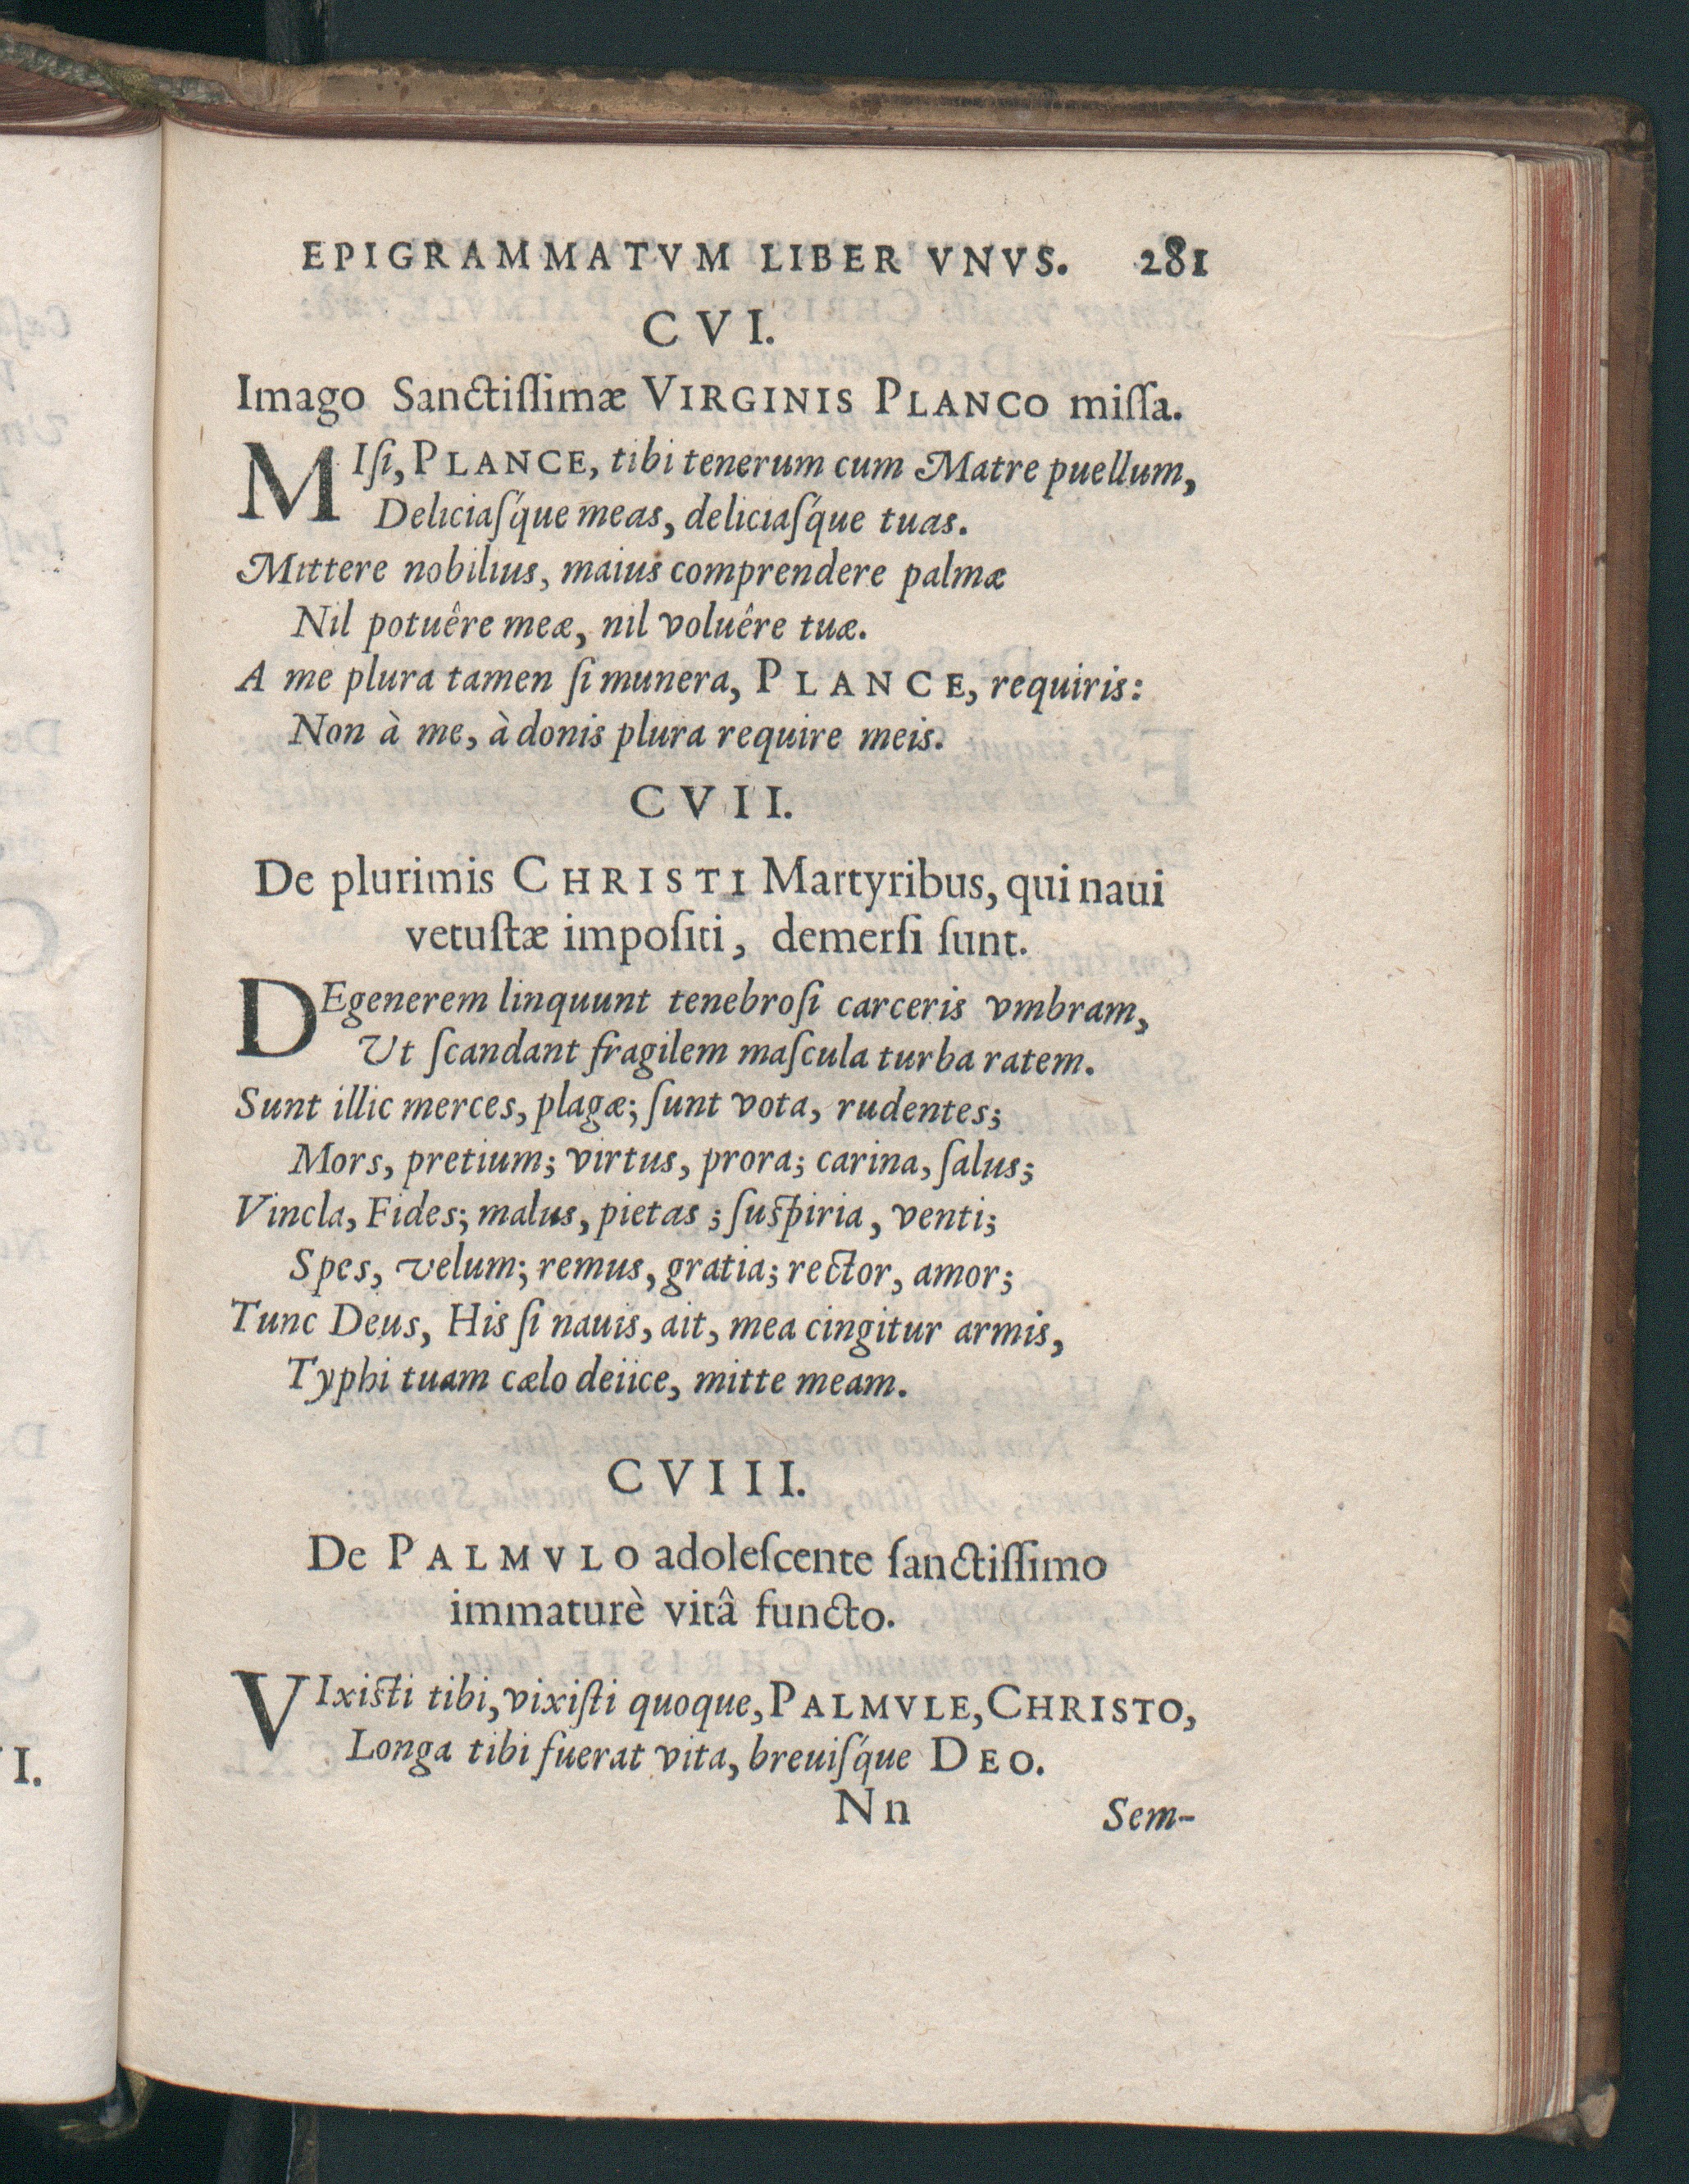 EPIGRAMMATVM LIBER VNVS. 281
CVI.
Imago Sanctiſſimæ VIRGINIS PLANCO miſſa.
MIſi, PLANCE, tibi tenerum cum Matre puellum,
Deliciaſq́ue meas, deliciaſq́ue tuas.
Mittere nobilius, maius comprendere palmæ
Nil potuêre meæ, nil voluêre tuæ.
A me plura tamen ſi munera, PLANCE, requiris:
Non à me, à donis plura require meis.
CVII.
De plurimis CHRISTI Martyribus, qui naui
vetuſtæ impoſiti, demerſi ſunt.
DEgenerem linquunt tenebroſi carceris vmbram,
Ut ſcandant fragilem maſcula turba ratem.
Sunt illic merces, plagæ; ſunt vota, rudentes;
Mors, pretium; virtus, prora; carina, ſalus;
Vincla, Fides; malus, pietas; ſuſpiria, venti;
Spes, velum; remus, gratia; rector, amor;
Tunc Deus, His ſi nauis, ait, mea cingitur armis,
Typhi tuam cælo deiice, mitte meam.
CVIII.
De PALMVLO adoleſcente ſanctiſſimo
immaturè vitâ functo.
VIxiſti tibi, vixiſti quoque, PALMVLE, CHRISTO,
Longa tibi fuerat vita, breuiſq́ue DEO.
Nn Sem-